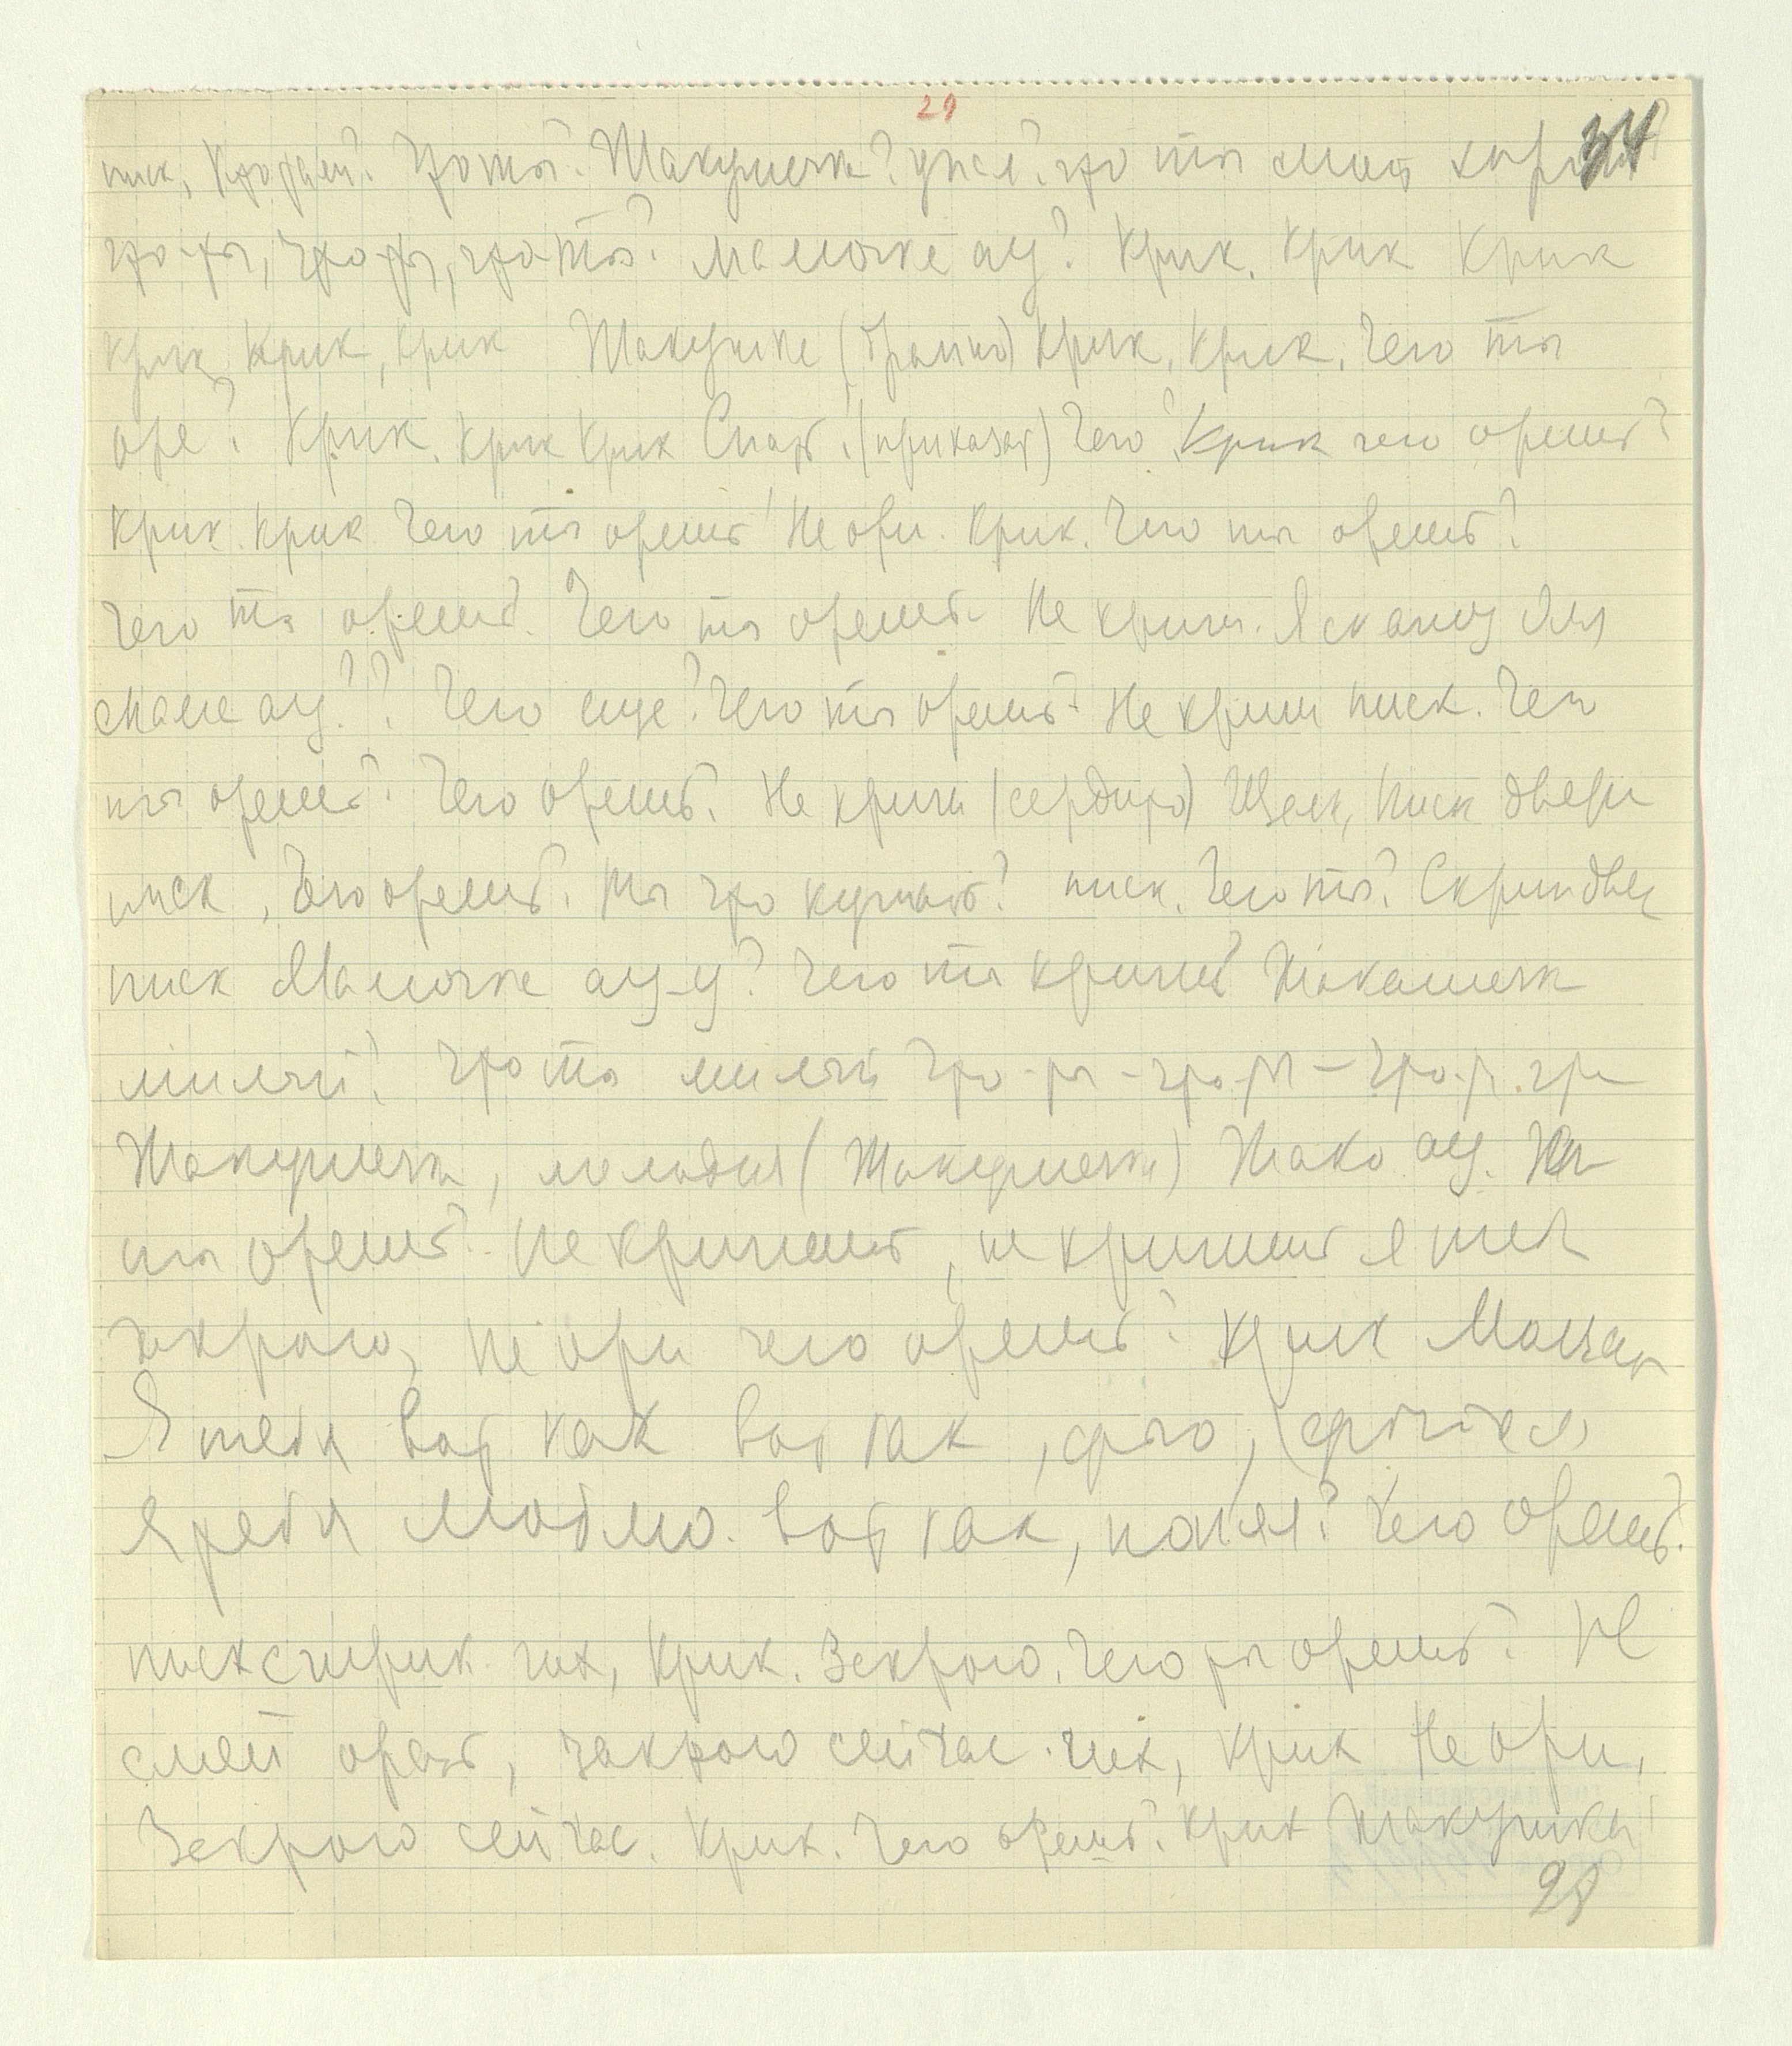 29
34
писк, Кто там? Что ты? Жакушечка? что ты мой хороший
что ты, что ты, что ты? Мамочке ау? Крик. Крик Крик
Крик Крик, Крик Жакушка (бранно) Крик, Крик. Чего ты
оре? Крик. Крик Крик Спать! (приказат) Чего? Крик чего орешь?
Крик. Крик Чего ты орешь! Не ори. Крик. Чего ты орешь?
Чего ты орешь. Чего ты орешь. Не кричи. Я скажу для
Маме ау?? Чего еще? Чего ты орешь? Не кричи писк. Чего
ты орешь? Чего орешь? Не кричи (сердито) Щелк, писк двери
писк, Чего орешь? Ты что кушать? писк. Чего ты? Скрип двер
писк Мамочке ау-у? Чего ты кричишь? Жакашечка
милый? Что ты милый Что-ты-что-ты-что-т. что
Жакушечка, молодая (Жакушечка) Жако ау.
ты орешь? Не кричишь, не кричишь я тебя
закрою, не ори чего орешь? Крик
Я тебя вот как вот так,
я тебя люблю. Вот так, понял? Чего орешь?
писк чирик чик, Крик. Закрою. Чего ты орешь? Не
смей орать, закрою сейчас. чик, Крик Не ори,
Закрою сейчас. Крик. Чего орешь? Крик Жакушка!
28